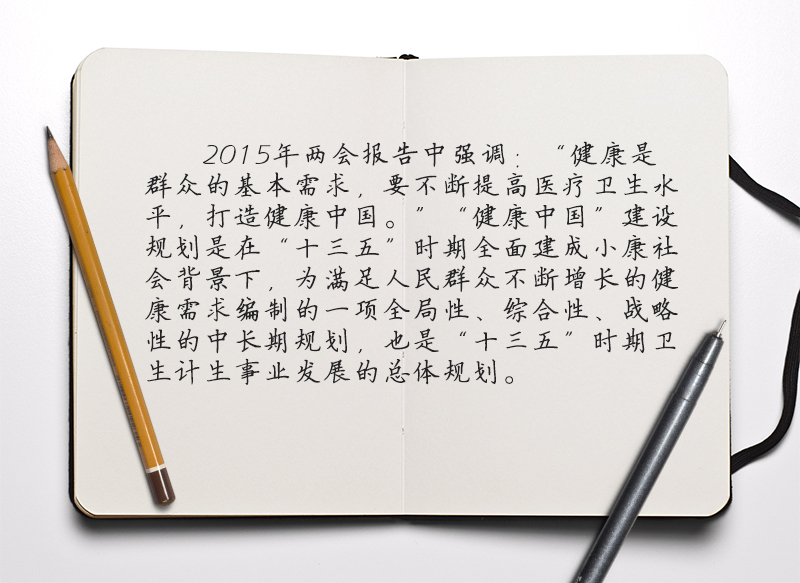 2015年两会报告中强调：“健康是
群众的基本需求，要不断提高医疗卫生水
平，打造健康中国。”“健康中国”建设
规划是在“十三五”时期全面建成小康社
会背景下，为满足人民群众不断增长的健
康需求编制的一项全局性、综合性、战略
性的中长期规划，也是“十三五”时期卫
生计生事业发展的总体规划。